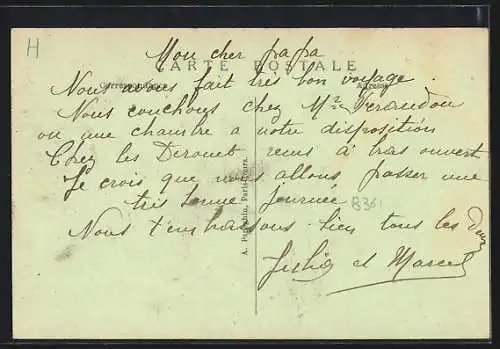 H
Mon cher papa
CARTE POSTALE
Correspondance
Adresse
Nous avons fait très bon voyage.
Nous couchons chez Mr
ou une chambre a notre disposition
Chez les Derouet reçus à bras ouvert
Je crois que nous allons passer une
très bonne journée
B361
Nous t'embrassons bien tous les deux
et Marcel
A. Paris-Tours.